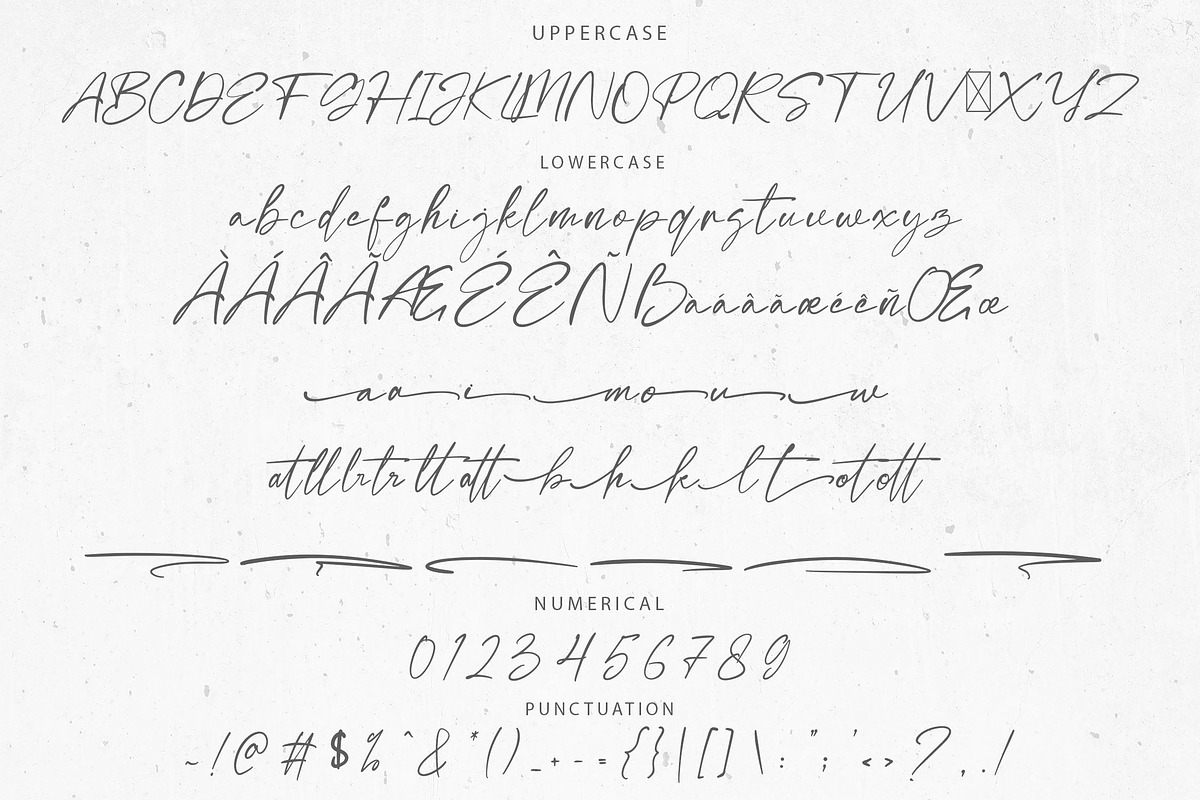 UPPERCASE
ABCDEFGHIJKLMNOPQRSTUVXYZ
LOWERCASE
abcdefghijklmnopqrstuvwxyz
ÀÁÂÃÆÉÊÑBàáâãæéêñŒœ
aa i mo u w
atlllrtrlttatt b h k l t otott
NUMERICAL
0123456789
PUNCTUATION
~!@#$%^&*()_+-={}|[]\:";'<>?,./